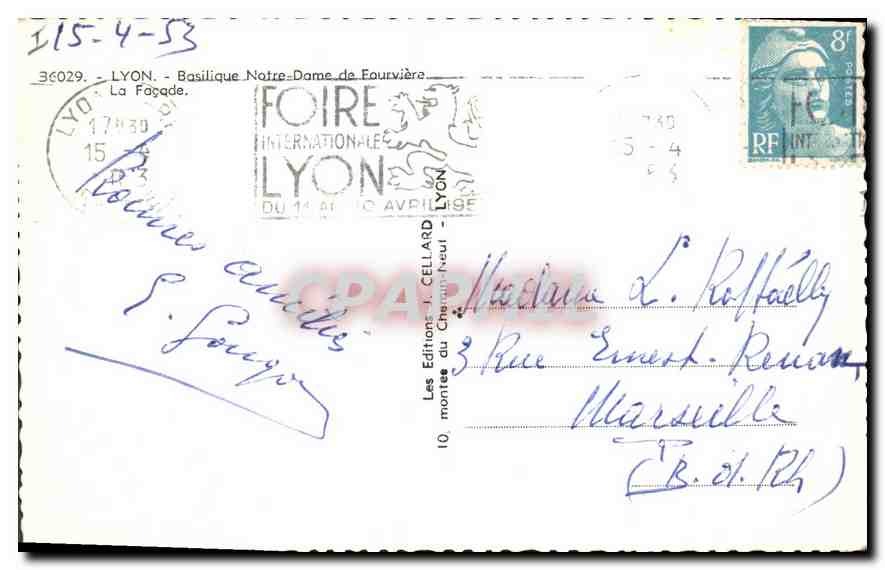 15-4-53
36029. - LYON. - Basilique Notre-Dame de Fourvière
La Façade.
LYON
17H30
15 - 4
FOIRE
INTERNATIONALE
LYON
DU 11 AU AVRIL 195
8F
POSTES
RF
Bonnes amitiés
Les Editions J. CELLARD
10, montée du Chemin-Neuf - LYON
CPARAMA
Madame L. Raffaëlly
3 Rue Ernest-Renan,
Marseille
(B. d. Rh)